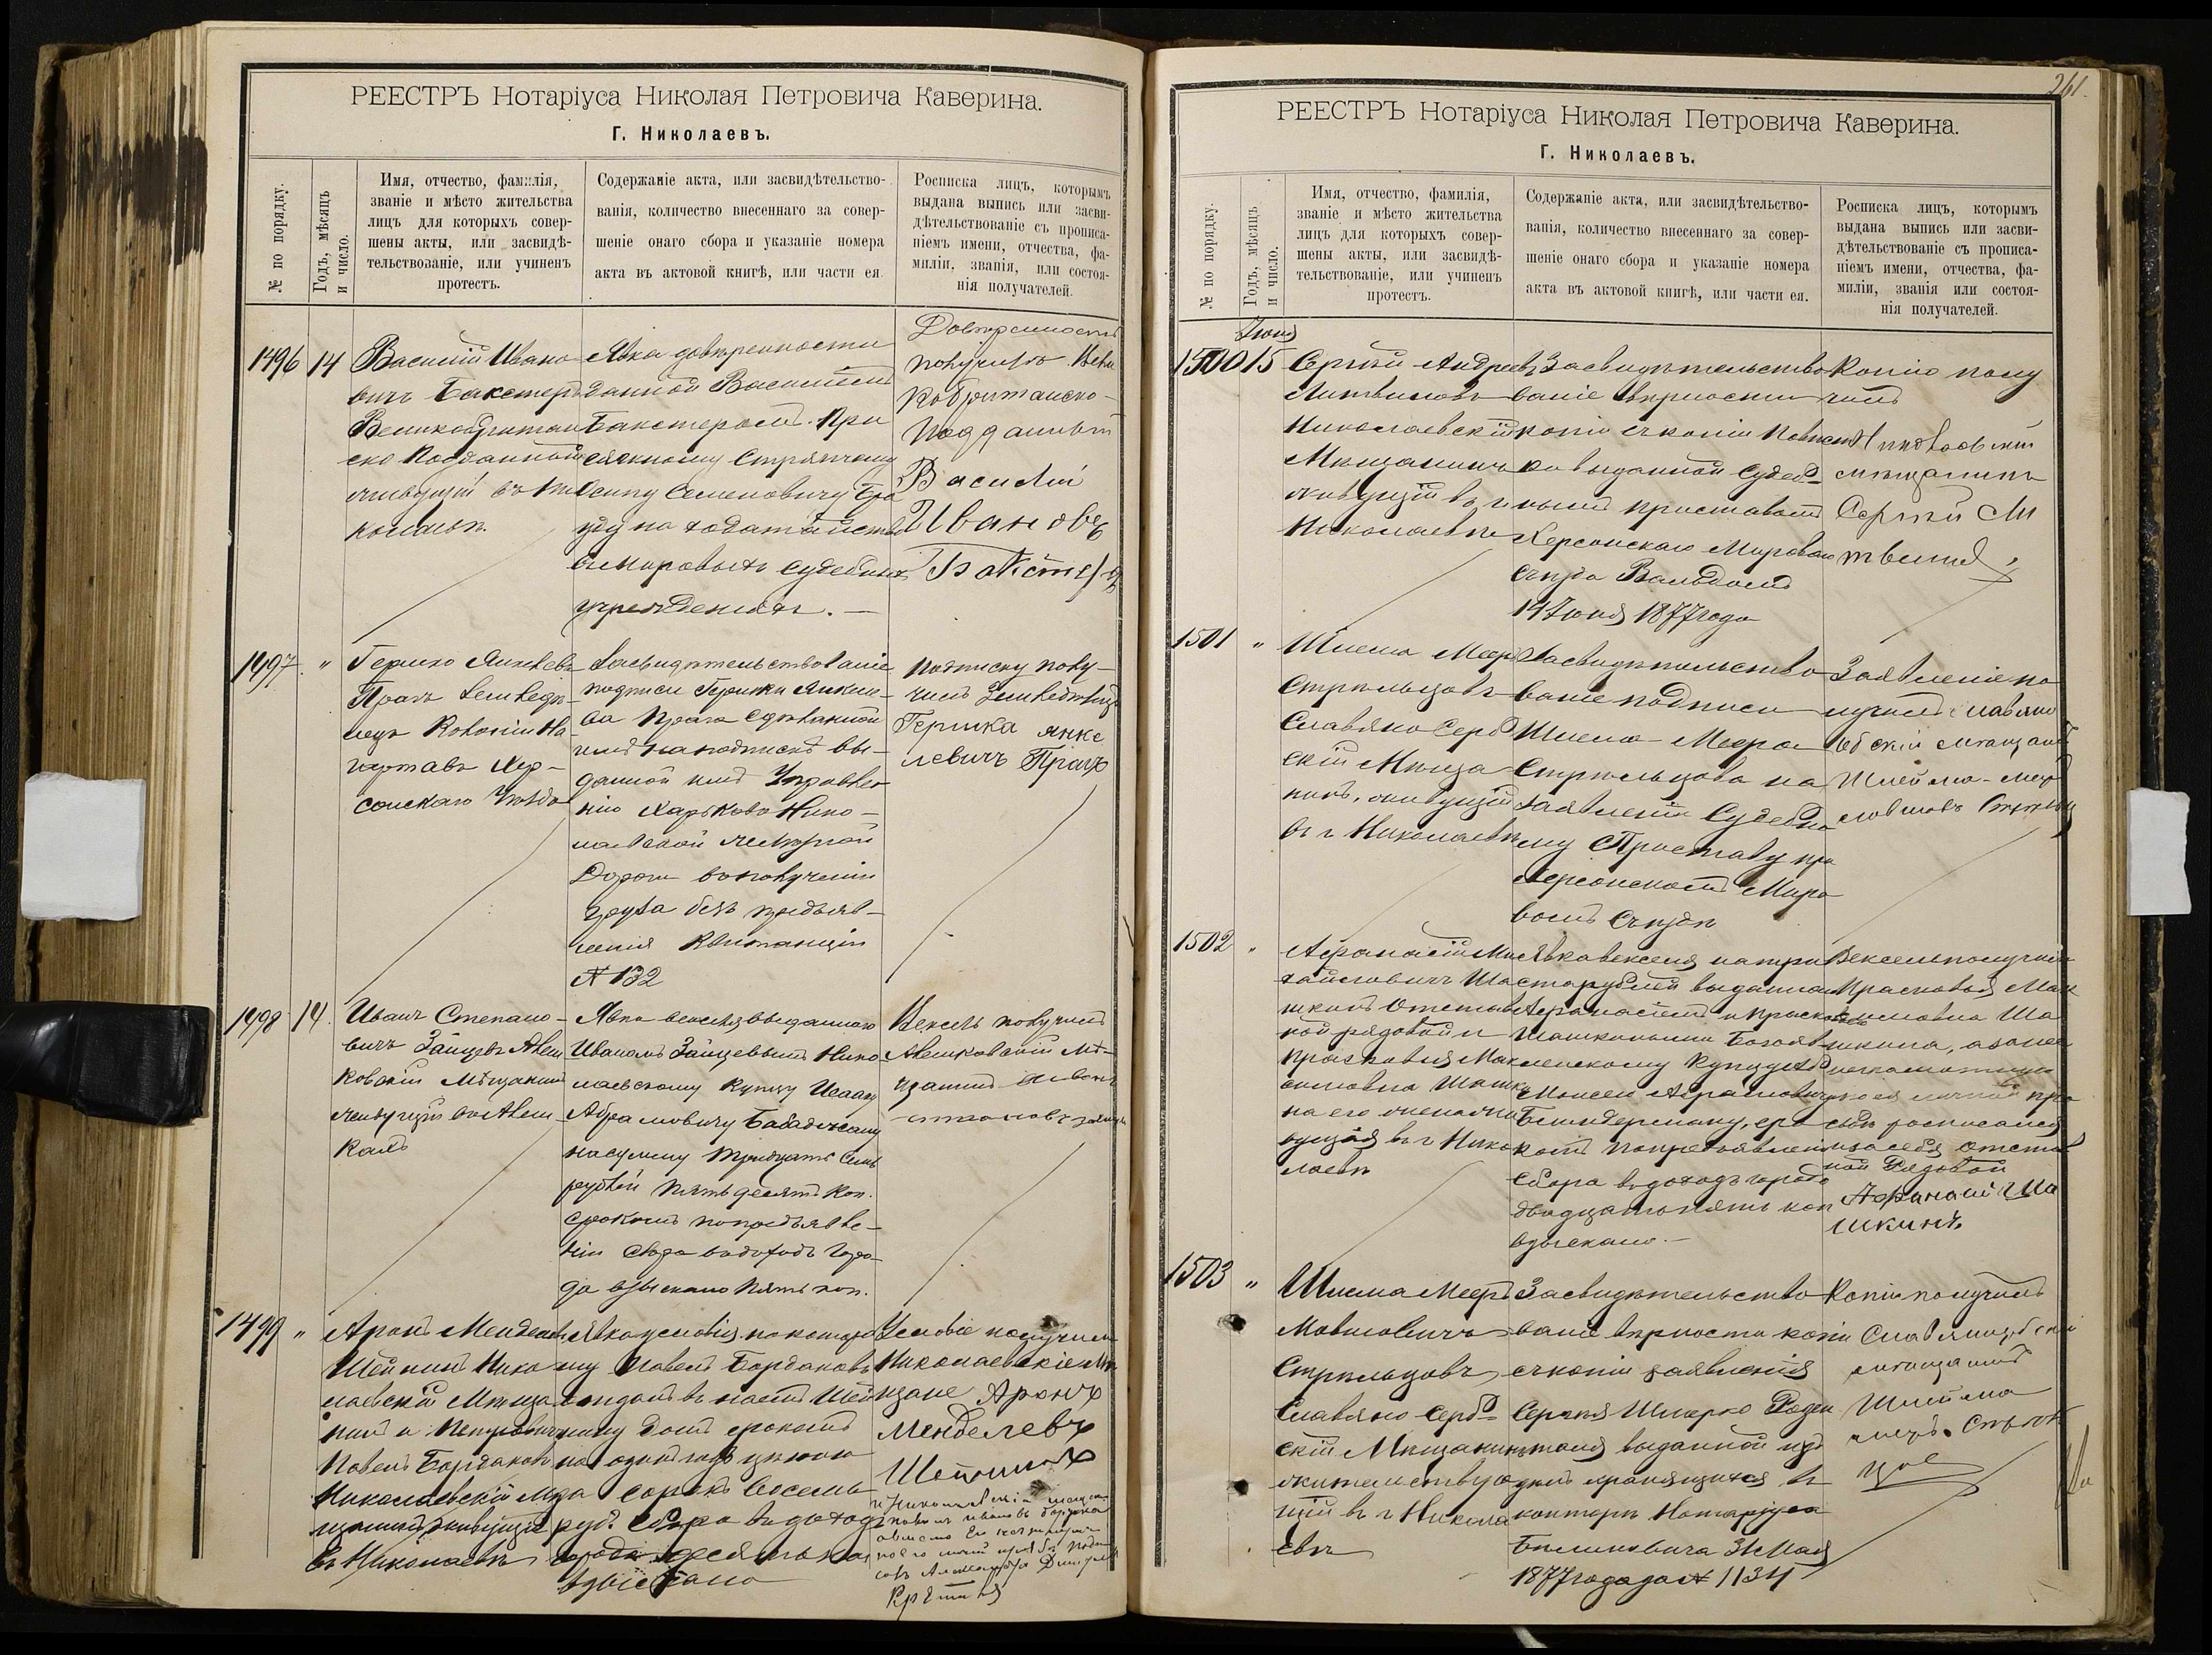 РЕЕСТРЪ Нотаріуса Николая Петровича Каверина.
Г. Николаевъ.
№ по порядку.
Годъ, мѣсяцъ
и число.
Имя, отчество, фамилія,
званіе и мѣсто жительства
лицъ для которыхъ совер-
шены акты, или засвидѣ-
тельствованіе, или учиненъ
протестъ.
Содержаніе акта, или засвидѣтельство-
ванія, количество внесеннаго за совер-
шеніе онаго сбора и указаніе номера
акта въ актовой книгѣ, или части ея
Росписка лицъ, которымъ
выдана выпись или засви-
дѣтельствованіе съ прописа-
ніемъ имени, отчества, фа-
миліи, званія, или состоя-
нія получателей.
1496
14
Василій Ивано
вичъ Бакстеръ
Великобритан
ско Подданный
живущій въ Ни
колаевѣ
Явка довѣренности
данной Василіемъ
Бакстеромъ При
сяжному Стряпчему
Осипу Семеновичу
на ходатайство
въ мировыхъ судебныхъ
учрежденіяхъ. —
Довѣренность
получилъ Вели
кобританско-
Подданный
Василій
Ивановъ
Бакстеръ
1497
"
Гершко Янкелев
Прагъ Земледѣ-
лецъ Колоніи На
гартавъ Хер-
сонскаго Уѣзда
Засвидѣтельствованіе
подписи Гершки Янкеле-
ва Прага сдѣланной
имъ на подпискѣ вы-
данной имъ Управле
нію Харьково Нико-
лаевской желѣзной
Дороги въ полученіи
груза безъ предъяв-
ленія Квитанціи
№ 132
Подписку полу-
чилъ Земледѣлецъ
Гершка Янке
левичъ Прагъ
1498
14.
Иванъ Степано-
вичъ Зайцевъ Алеш
ковскій Мѣщанинъ
живущій въ Алеш-
кахъ
Явка векселя выданнаго
Иваномъ Зайцевымъ Нико
лаевскому Купцу Исааку
Абрамовичу Бабаджану
на сумму тридцать семь
рублей пятьдесятъ коп.
срокомъ по предъявле-
ніи сбора въ доходъ горо-
да взыскано пять коп.
Вексель получилъ
Алешковскій Мѣ-
щанинъ Иванъ
1499
"
Аронъ Менделев
Шейнинъ Нико
лаевскій Мѣща
нинъ и Петровичъ
Павелъ Бардаковъ
Николаевскій Мѣ
щанинъ живущіе
въ Николаевѣ
Явка условія по которо
му Павелъ Бардаковъ
отдалъ въ наемъ Шей
нину домъ срокомъ
на одинъ годъ цѣною
за сорокъ восемь
руб. сбора въ доходъ
города десять коп.
взыскано
Условіе получили
Николаевскіе Мѣ
щане Аронъ
Менделевъ
Шейнинъ
261.
РЕЕСТРЪ Нотаріуса Николая Петровича Каверина.
Г. Николаевъ.
№ по порядку.
Годъ, мѣсяцъ
и число.
Имя, отчество, фамилія,
званіе и мѣсто жительства
лицъ для которыхъ совер-
шены акты, или засвидѣ-
тельствованіе, или учиненъ
протестъ.
Содержаніе акта, или засвидѣтельство-
ванія, количество внесеннаго за совер-
шеніе онаго сбора и указаніе номера
акта въ актовой книгѣ, или части ея.
Росписка лицъ, которымъ
выдана выпись или засви-
дѣтельствованіе съ прописа-
ніемъ имени, отчества, фа-
миліи, званія или состоя-
нія получателей.
Іюня
1500
15
Сергѣй Андреевъ
Литвиновъ
Николаевскій
Мѣщанинъ
живущій въ г
Николаевѣ
Засвидѣтельство
ваніе вѣрности
копіи съ копіи Повѣст
ки выданной Судеб-
нымъ приставомъ
Херсонскаго Мироваго
Съѣзда
14 Іюня 1877 года
Копію полу
чилъ
Николаевскій
мѣщанинъ
Сергѣй Ли
твинов
1501
"
Шлема Меер
Стрѣльцовъ
Славяно Серб
скій Мѣща
нинъ, живущій
въ г Николаевѣ
Засвидѣтельство
ваніе подписи
Шлема-Меера
Стрѣльцова на
заявленіи Судебно
му Приставу при
Херсонскомъ Миро
вомъ Съѣздѣ
Заявленіе по
лучилъ Славяно
сербскій мѣщанин
Шлейма-Меер
1502
"
Афанасій Ми
хайловичъ Ша
шкинъ Отстав
ной рядовой и
Прасковья Мак
симовна Шашки
на его жена жи
вущія въ г Нико
лаевѣ
Явка векселя на три
ста рублей выданнаго
Афанасіемъ и Прасковьею
Шашкиными
купцу
Моисею Абрамовичу
сро
комъ по предъявленіи
Сбора въ доходъ города
двадцать пять коп
взыскано.—
Вексель получили
Прасковья Мак
симовна Ша
шкина, а за нее
неграмотную
по ея личной про
сьбѣ росписался
и за себя отстав
ной Рядовой
Афанасій Ша
шкинъ
1503
"
Шлема Меер
Мовшовичъ
Стрѣльцовъ
Славяно Серб-
скій Мѣщанинъ
жительствую
щій въ г Никола
евѣ
Засвидѣтельство
ваніе вѣрности копіи
съ копіи заявленія
Сергѣя
выданной изъ
дѣлъ хранящихся въ
конторѣ Нотаріуса
31 Мая
1877 года за № 1134
Копію получилъ
Славяносербскій
мѣщанинъ
Шлейма
меръ. Стрѣль
цов